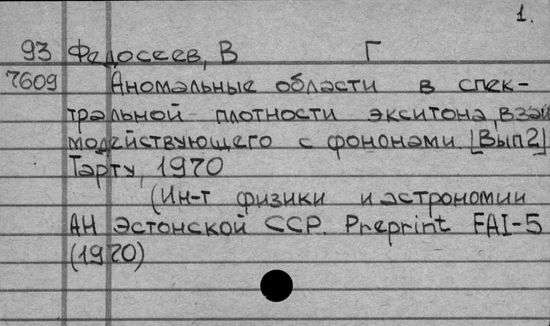 1.
93 Федосеев, В Г
7609 Аномальные области в спек-
тральной плотности экситона, взаи
модействующего с фононами. [Вып2]
Тарту, 1970
(Ин-т физики и астрономии
АН Эстонской ССР. Preprint FAI-5
(1970)